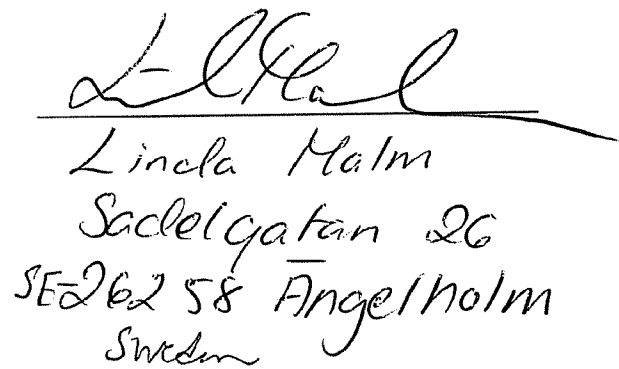 Linda Malm
Sadelgatan 26
SE-262 58 Ängelholm
Sweden